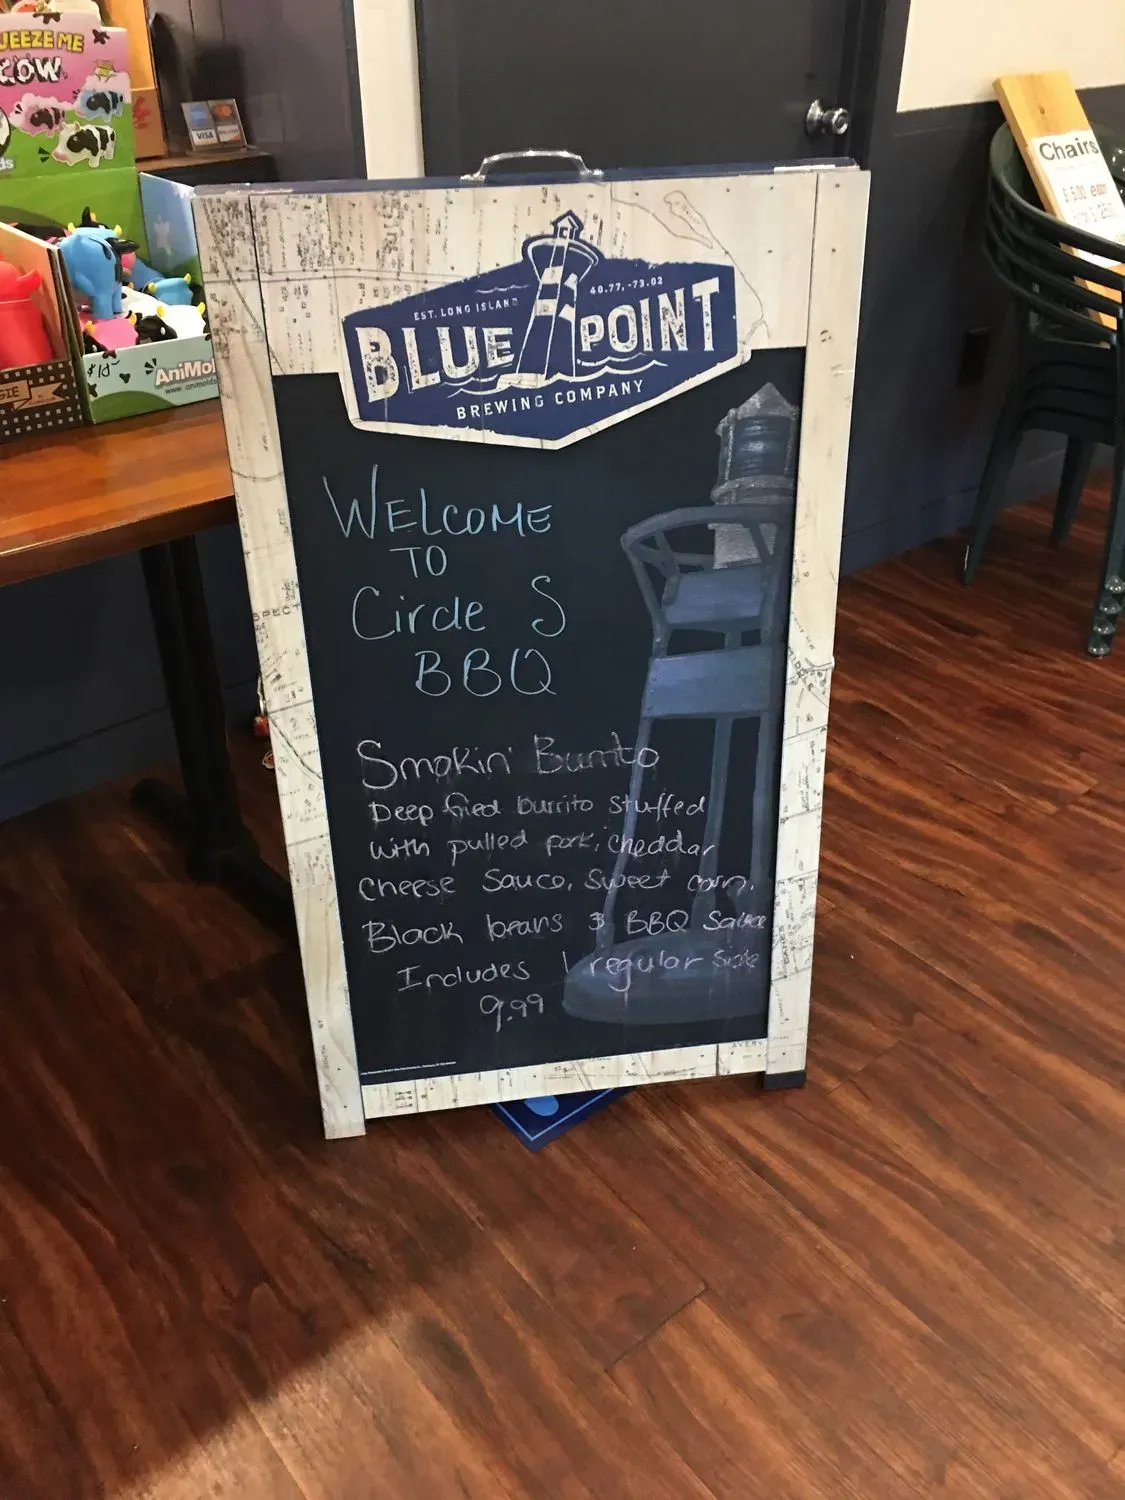 UEEZE ME
COW
VISA
$10-
AniMol
www.animolds
GIE
Chairs
$5.00 each
EST. LONG ISLAND
40.77,-73.02
BLUE POINT
BREWING COMPANY
WELCOME
TO
Circle S
BBQ
Smokin' Burrito
Deep fried burrito stuffed
with pulled pork, cheddar
cheese Sauce, Sweet corn,
Black beans & BBQ Sauce
Includes 1 regular Side
9.99